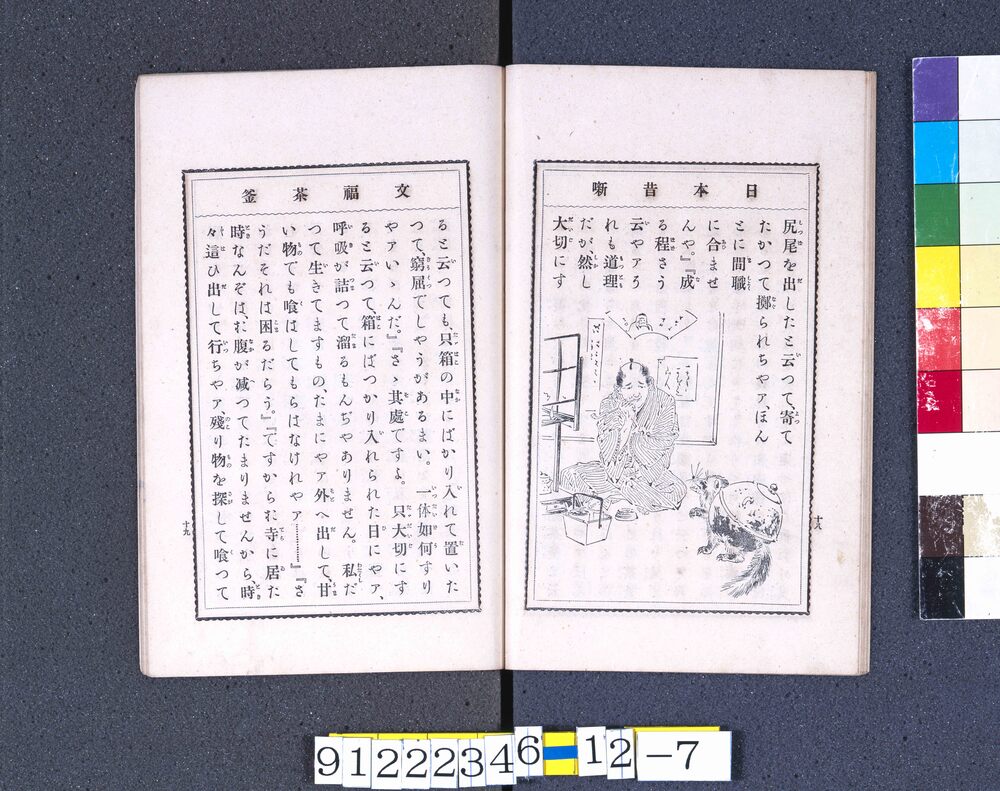 日本昔噺
尻尾を出したと云つて、寄て
たかつて擲られちやアぽん
とに間職
に合ませ
んや。』『成
る程さう
云やアろ
れも道理
だが然し
大切にす
十八
文福茶釜
ると云つても、只箱の中にばかり入れて置いた
つて、窮屈でしやうがあるまい。一体如何すり
やアいゝんだ。』『さゝ其處ですよ。只大切にす
ると云つて、箱にばつかり入れられた日にやア、
呼吸が詰つて溜るもんぢやありません。私だ
つて生きてますもの、たまにやア外へ出して、甘
い物でも喰はしてもらはなけれやア…………』『さ
うだそれは困るだらう。』『ですからお寺に居た
時なんぞは、お腹が减つてたまりませんから、時
々這ひ出して行ちやア、殘り物を探して喰つて
十九
91222346=12-7